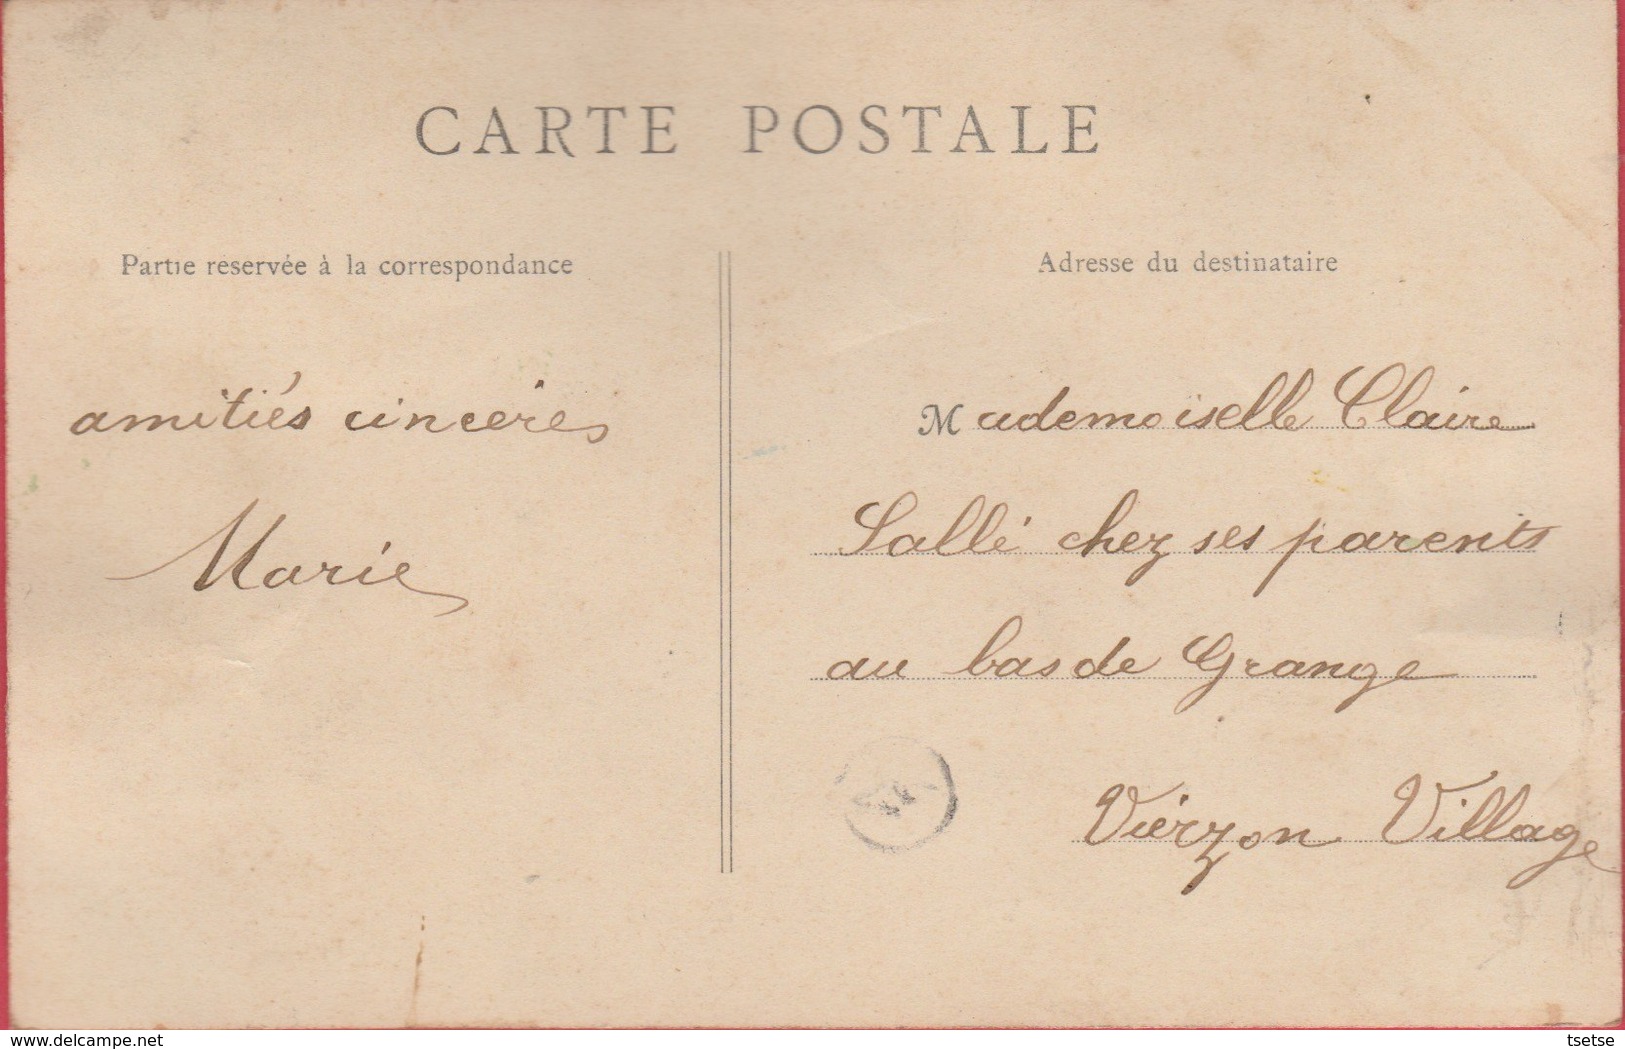 CARTE POSTALE
Partie reservée à la correspondance
amitiés cinceres
Marie
Adresse du destinataire
Mademoiselle Claire
Sallé chez ses parents
au bas de Grange
Vierzon Village
delcampe.net
tsetse